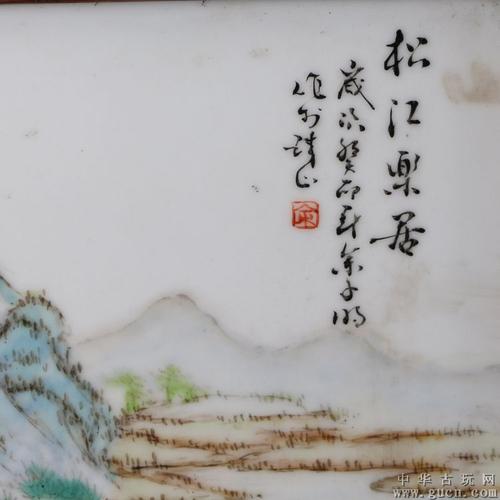 松江樂居
歲次癸卯到余子明
作於珠山
余
中华古玩网
www.gucn.com